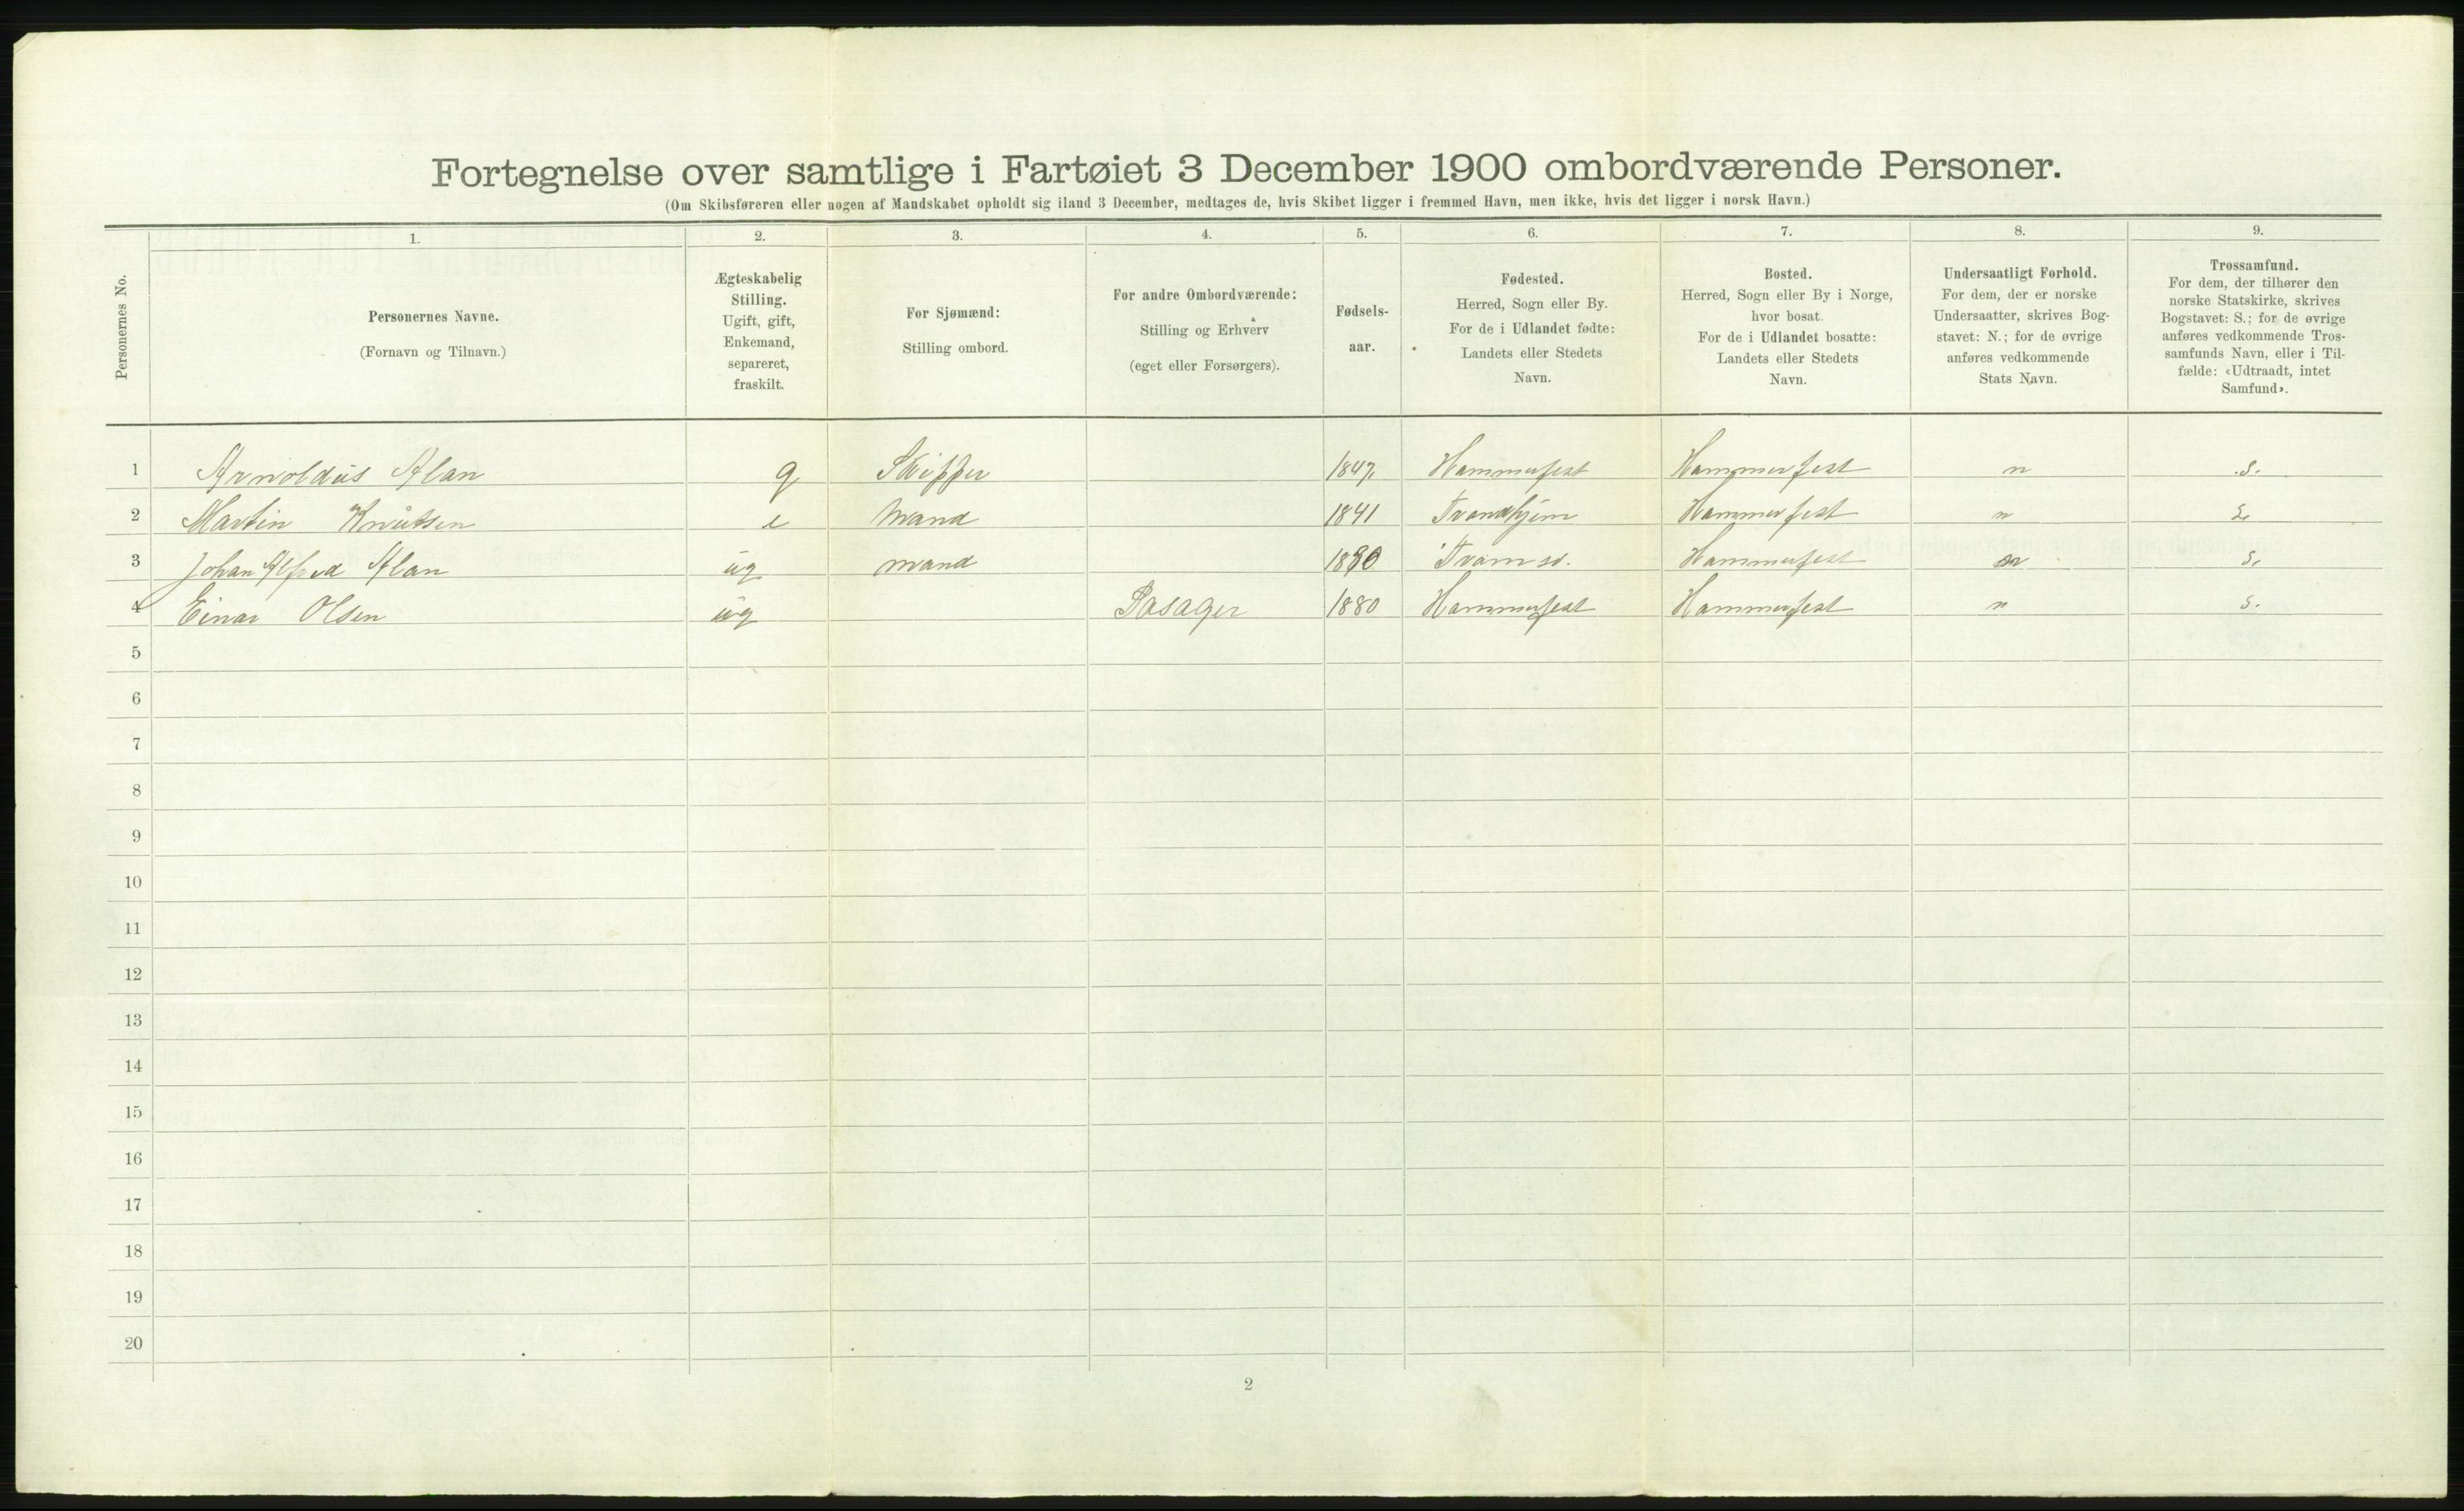 Fortegnelse over samtlige i Fartøiet 3 December 1900 ombordværende Personer.
(Om Skibsføreren eller nogen af Mandskabet opholdt sig iland 3 December, medtages de, hvis Skibet ligger i fremmed Havn, men ikke, hvis det ligger i norsk Havn.)
Personernes No.
1.
Personernes Navne.
(Fornavn og Tilnavn.)
2.
Ægteskabelig
Stilling.
Ugift, gift,
Enkemand,
separeret,
fraskilt.
3.
For Sjømænd:
Stilling ombord.
4.
For andre Ombordværende:
Stilling og Erhverv
(eget eller Forsørgers).
5.
Fødsels-
aar.
6.
Fødested.
Herred, Sogn eller By.
For de i Udlandet fødte:
Landets eller Stedets
Navn.
7.
Bosted.
Herred, Sogn eller By i Norge,
hvor bosat.
For de i Udlandet bosatte:
Landets eller Stedets
Navn.
8.
Undersaatligt Forhold.
For dem, der er norske
Undersaatter, skrives Bog-
stavet: N.; for de øvrige
anføres vedkommende
Stats Navn.
9.
Trossamfund.
For dem, der tilhører den
norske Statskirke, skrives
Bogstavet: S.; for de øvrige
anføres vedkommende Tros-
samfunds Navn, eller i Til-
fælde: «Udtraadt, intet
Samfund».
1 Arnoldus Alan g Skipper 1847 Hammerfest Hammerfest n s.
2 Martin Knutsen e Mand 1841 Trondhjem Hammerfest n s.
3 Johan Alfred Alan ug mand Tromsø. Hammerfest n s.
4 Einar Olsen ug Pasager 1880 Hammerfest Hammerfest n s.
5
6
7
8
9
10
11
12
13
14
15
16
17
18
19
20
2